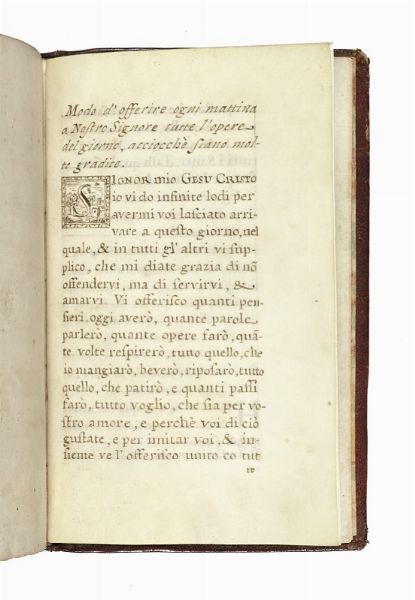 Modo d'offerire ogni mattina
a Nostro Signore tutte l'opere
del giorno, acciocchè siano mol-
to gradite.
SIGNOR mio GESU CRISTO
io vi do infinite lodi per
avermi voi lasciato arri-
vare a questo giorno, nel
quale, & in tutti gl'altri vi sup-
plico, che mi diate grazia di nõ
offendervi, ma di servirvi, &
amarvi. Vi offerisco quanti pen-
sieri oggi averò, quante parole
parlerò, quante opere farò, quã-
te volte respirerò, tutto quello, che
io mangiarò, beverò, riposarò, tutto
quello, che patirò, e quanti passi
farò, tutto voglio, che sia per vo-
stro amore, e perchè voi di ciò
gustate, e per imitar voi, & in-
sieme ve l'offerisco unito co tut
to